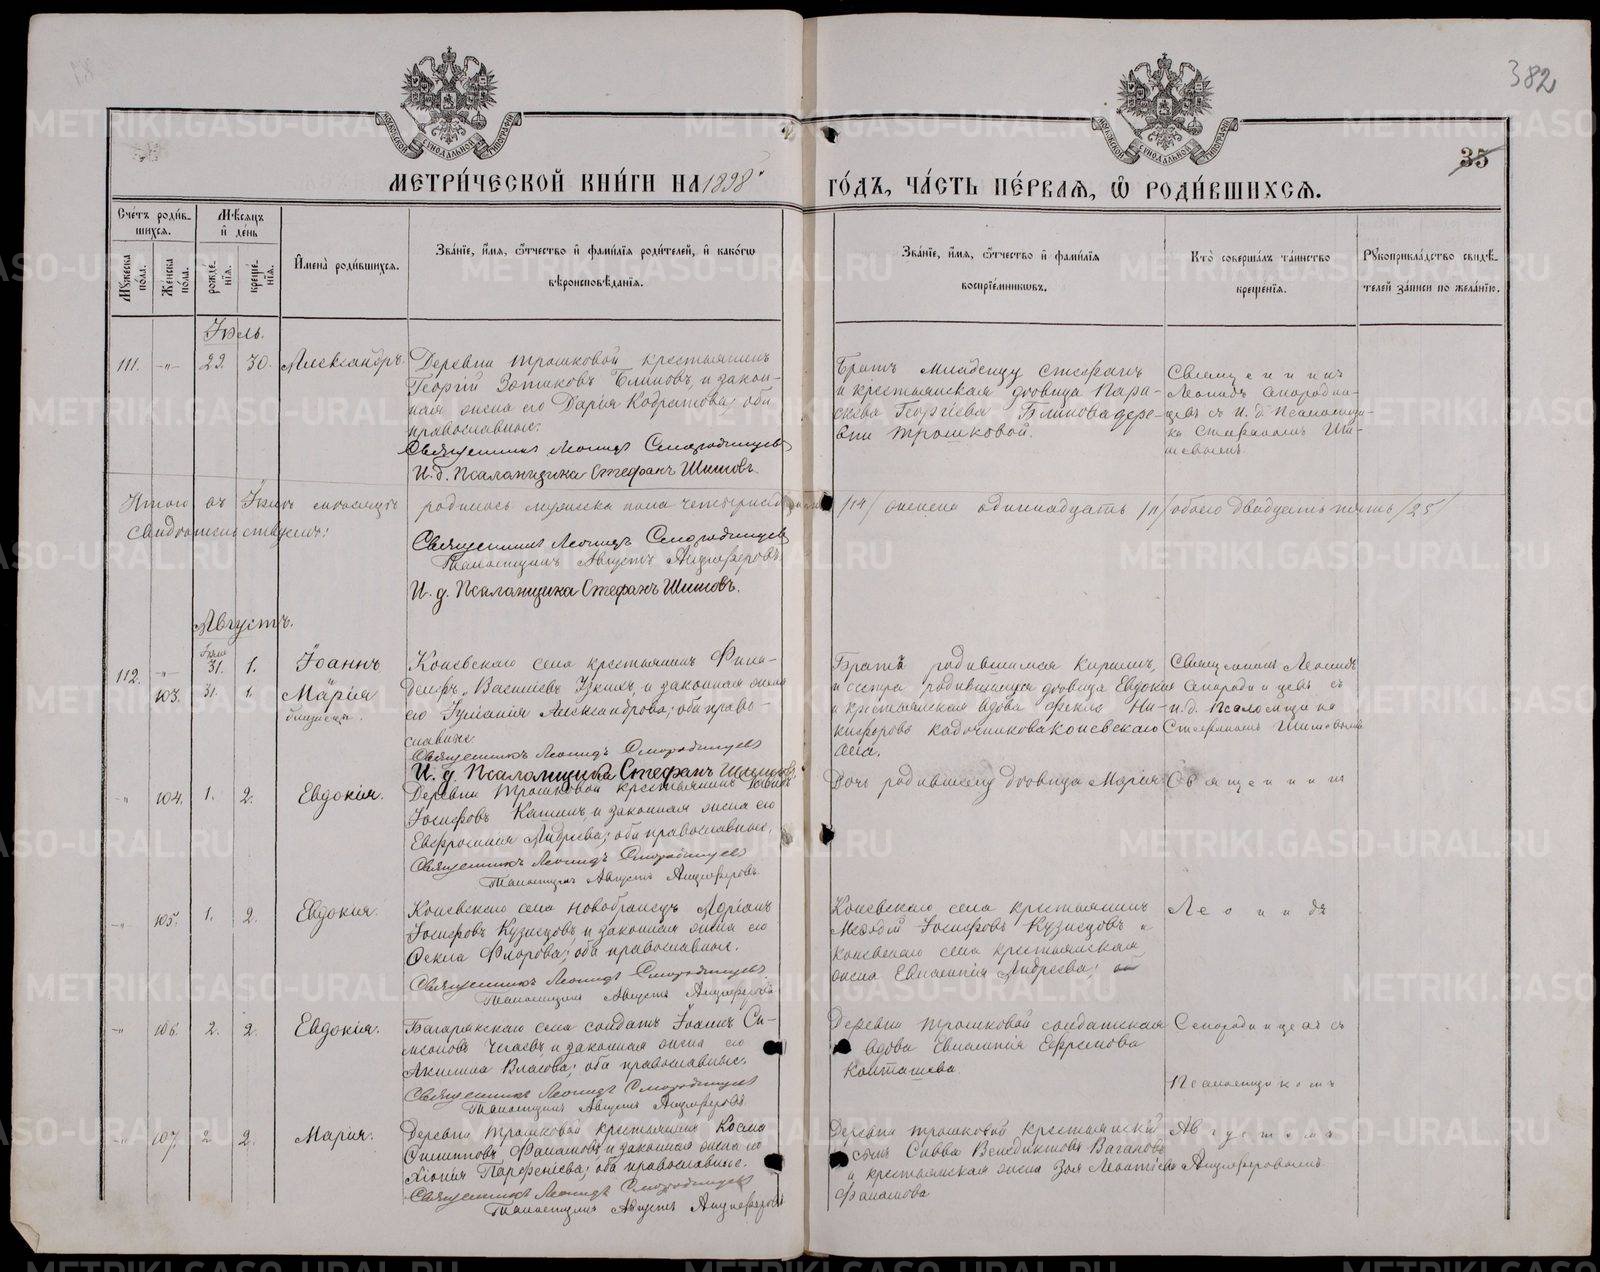 382
35
МЕТРИ́ЧЕСКОЙ КНИ́ГИ НА 1898 ГО́ДЪ, ЧА́СТЬ ПЕ́РВАѦ, Ѽ РОДИ́ВШИХСѦ.
Сче́тъ роди́вшихсѧ.
Мꙋжеска по́ла.
Женска по́ла.
Мѣ́сѧцъ и҆ де́нь
рожде́нїѧ.
креще́нїѧ.
И҆мена̀ роди́вшихсѧ.
Зва́нїе, и҆́мѧ, ѻ҆́тчество и҆ фами́лїѧ роди́телей, и҆ како́гѡ
вѣроисповѣ́данїѧ.
Зва́нїе, и҆́мѧ, ѻ҆́тчество и҆ фами́лїѧ
воспрїе́мникѡвъ.
Кто̀ соверша́лъ та́инство
креще́нїѧ.
Рꙋкоприкла́дство свидѣ́телей за́писи по жела́нїю.
Іюль.
111. -„- 22. 30. Александръ.
Деревни Трошковой крестьянинъ
Георгій Зотиковъ Блиновъ, и закон-
ная жена его Дарія Кодратова; оба
православные.
Священникъ Леонидъ Смородинцевъ
И. д. Псаломщика Стефанъ Шишовъ.
Братъ младенцу Стефанъ
и крестьянская дѣвица Пара-
скева Георгіева Блинова дере-
вни Трошковой.
Священникъ
Леонидъ Смородин-
цевъ съ и. д. Псаломщи-
ка Стефаномъ Ши-
шовымъ.
Итого въ Іюлѣ мѣсяцѣ родилось мужеска пола четырнадцать /14/ женска одиннадцать /11/ обоего двадцать пять /25/
Свидѣтельствуемъ:
Священникъ Леонидъ Смородинцевъ
Псаломщикъ Августъ Анциферовъ
И. д. Псаломщика Стефанъ Шишовъ.
Августъ.
112. -„- Іюля 31. 1. Іоаннъ
103. 31. 1. Марія
близнецы.
Коневскаго села крестьянинъ Фила-
дельфъ Василіевъ Узкихъ, и законная жена
его Іуліанія Александрова; оба право-
славные.
Священникъ Леонидъ Смородинцевъ
И. д. Псаломщика Стефанъ Шишовъ.
Братъ родившимся Кириллъ,
и сестра родившимся дѣвица Евдокія
и крестьянская вдова Ни-
кифорова Кадочникова Коневскаго
села.
Священникъ Леонидъ
Смородинцевъ съ
и. д. Псаломщика
Стефаномъ Шишовымъ
-„- 104. 1. 2. Евдокія.
Деревни Трошковой крестьянинъ
Іосифовъ Катинъ, и законная жена его
Евфросинія Андреева; оба православные.
Священникъ Леонидъ Смородинцевъ
Псаломщикъ Августъ Анциферовъ
Дочь родившему дѣвица Марія
Священникъ
-„- 105. 1. 2. Евдокія.
Коневскаго села новобранецъ Адріанъ
Іосифовъ Кузнецовъ и законная жена его
Ѳекла Флорова; оба православные.
Священникъ Леонидъ Смородинцевъ.
Псаломщикъ Августъ Анциферовъ
Коневскаго села крестьянинъ
Меѳодій Іосифовъ Кузнецовъ и
Коневскаго села крестьянская
жена Евлампія Андреева;
Леонидъ
-„- 106. 2. 2. Евдокія.
Багарякскаго села солдатъ Іоаннъ Си-
меоновъ Чепаевъ, и законная жена его
Акилина Власова; оба православные.
Священникъ Леонидъ Смородинцевъ
Псаломщикъ Августъ Анциферовъ
Деревни Трошковой солдатская
вдова Евлампія Ефремова
Колташева.
Смородинцевъ съ
Псаломщикомъ
-„- 107. 2 2. Марія.
Деревни Трошковой крестьянинъ Косма
Филипповъ Фалатовъ, и законная жена его
Хіонія Парфеніева; оба православные.
Священникъ Леонидъ Смородинцевъ
Псаломщикъ Августъ Анциферовъ
Деревни Трошковой крестьянскій
сынъ Савва Венедиктовъ Вагановъ
и крестьянская жена Зоя Леонтіева
Фалатова
Августомъ
Анциферовымъ
METRIKI.GASO-URAL.RU